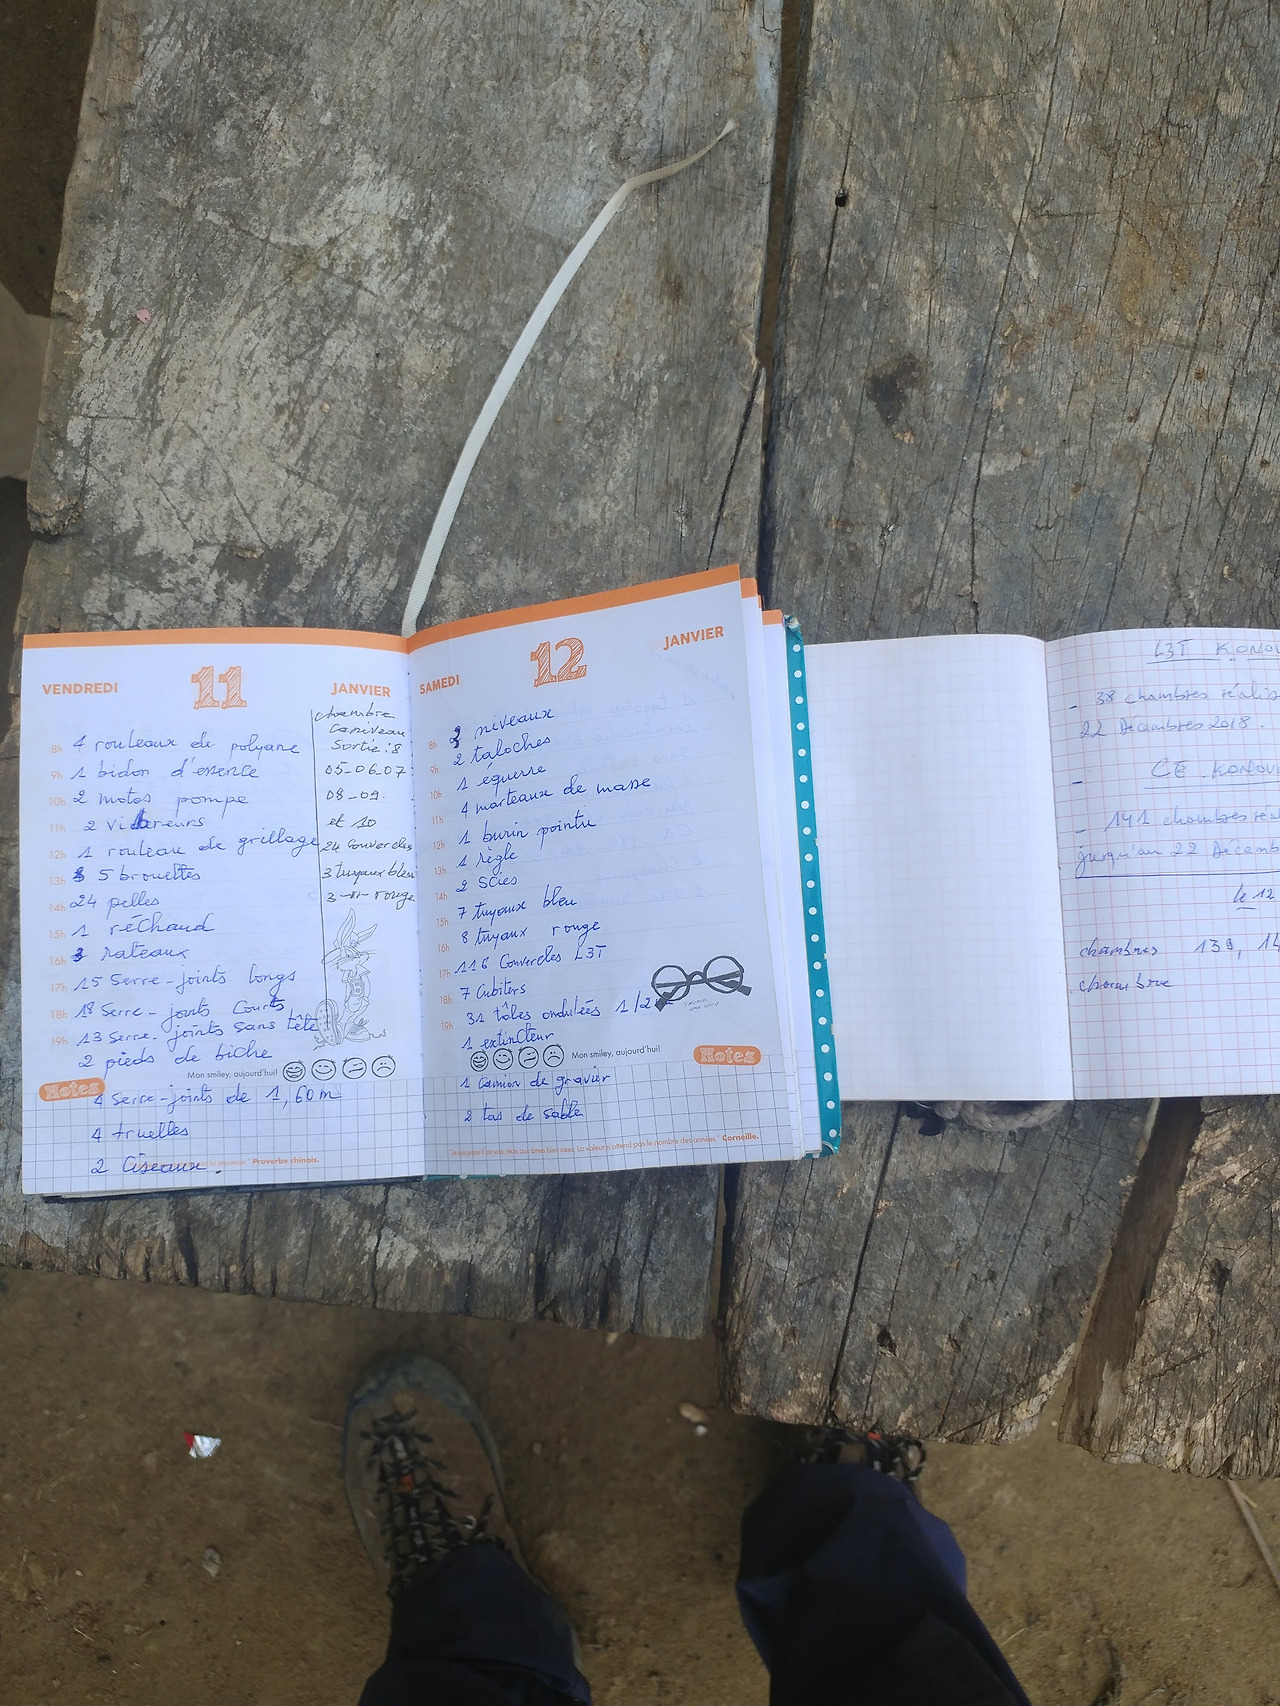 VENDREDI 11 JANVIER
8h 4 rouleaux de polyane
9h 1 bidon d'essence
10h 2 motos pompe
11h 2 vibreurs
12h 1 rouleau de grillage
13h 5 brouettes
14h 24 pelles
15h 1 réchaud
16h 3 rateaux
17h 15 Serre-joints longs
18h 18 Serre-joints Courts
19h 13 Serre-joints sans tête
2 pieds de biche
Mon smiley, aujourd'hui!
Notes
4 Serre-joints de 1,60m
4 truelles
2 Ciseaux.
Proverbe chinois.
chambre
Caniveau
Sortie : 8
05-06-07
08-09.
et 10
24 couvercles
3 tuyaux bleu
3 -"- rouge
SAMEDI 12 JANVIER
8h niveaux
9h 2 taloches
10h 1 équerre
11h 4 marteaux de masse
12h 1 burin pointu
13h 1 règle
14h 2 Scies
15h 7 tuyaux bleu
16h 8 tuyaux rouge
17h 116 Couvercles L3T
18h 7 Cubiters
19h 31 tôles ondulées 1/2
1 extincteur
Mon smiley, aujourd'hui!
Notes
1 camion de gravier
2 tas de sable
mais aux âmes bien nées. La valeur n'attend pas le nombre des années" Corneille.
L3T
- 38 chambres
22 Décembres 2018.
- CE
- 141 chambres
jusqu'au 22
le 12
chambres 139,
chambre